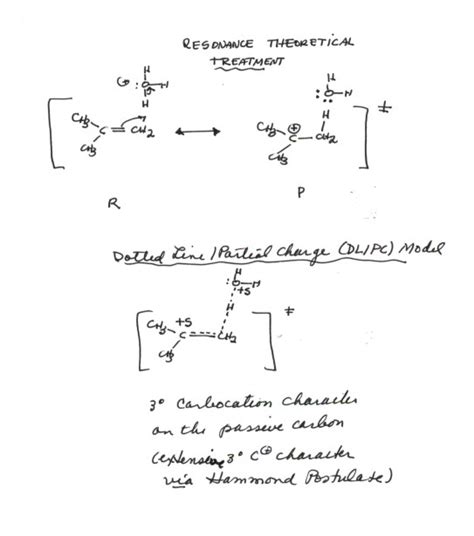 RESONANCE THEORETICAL
TREATMENT
H
⊕ :O—H
H
CH₃
C=CH₂
CH₃
H
:O—H
H
CH₃ ⊕
C—CH₂
CH₃
‡
R
P
Dotted Line/Partial Charge (DL/PC) Model
H
:O—H
+δ
H
CH₃ +δ
C CH₂
CH₃
‡
3° Carbocation Character
on the passive carbon
(extensive 3° C⊕ character
via Hammond Postulate)